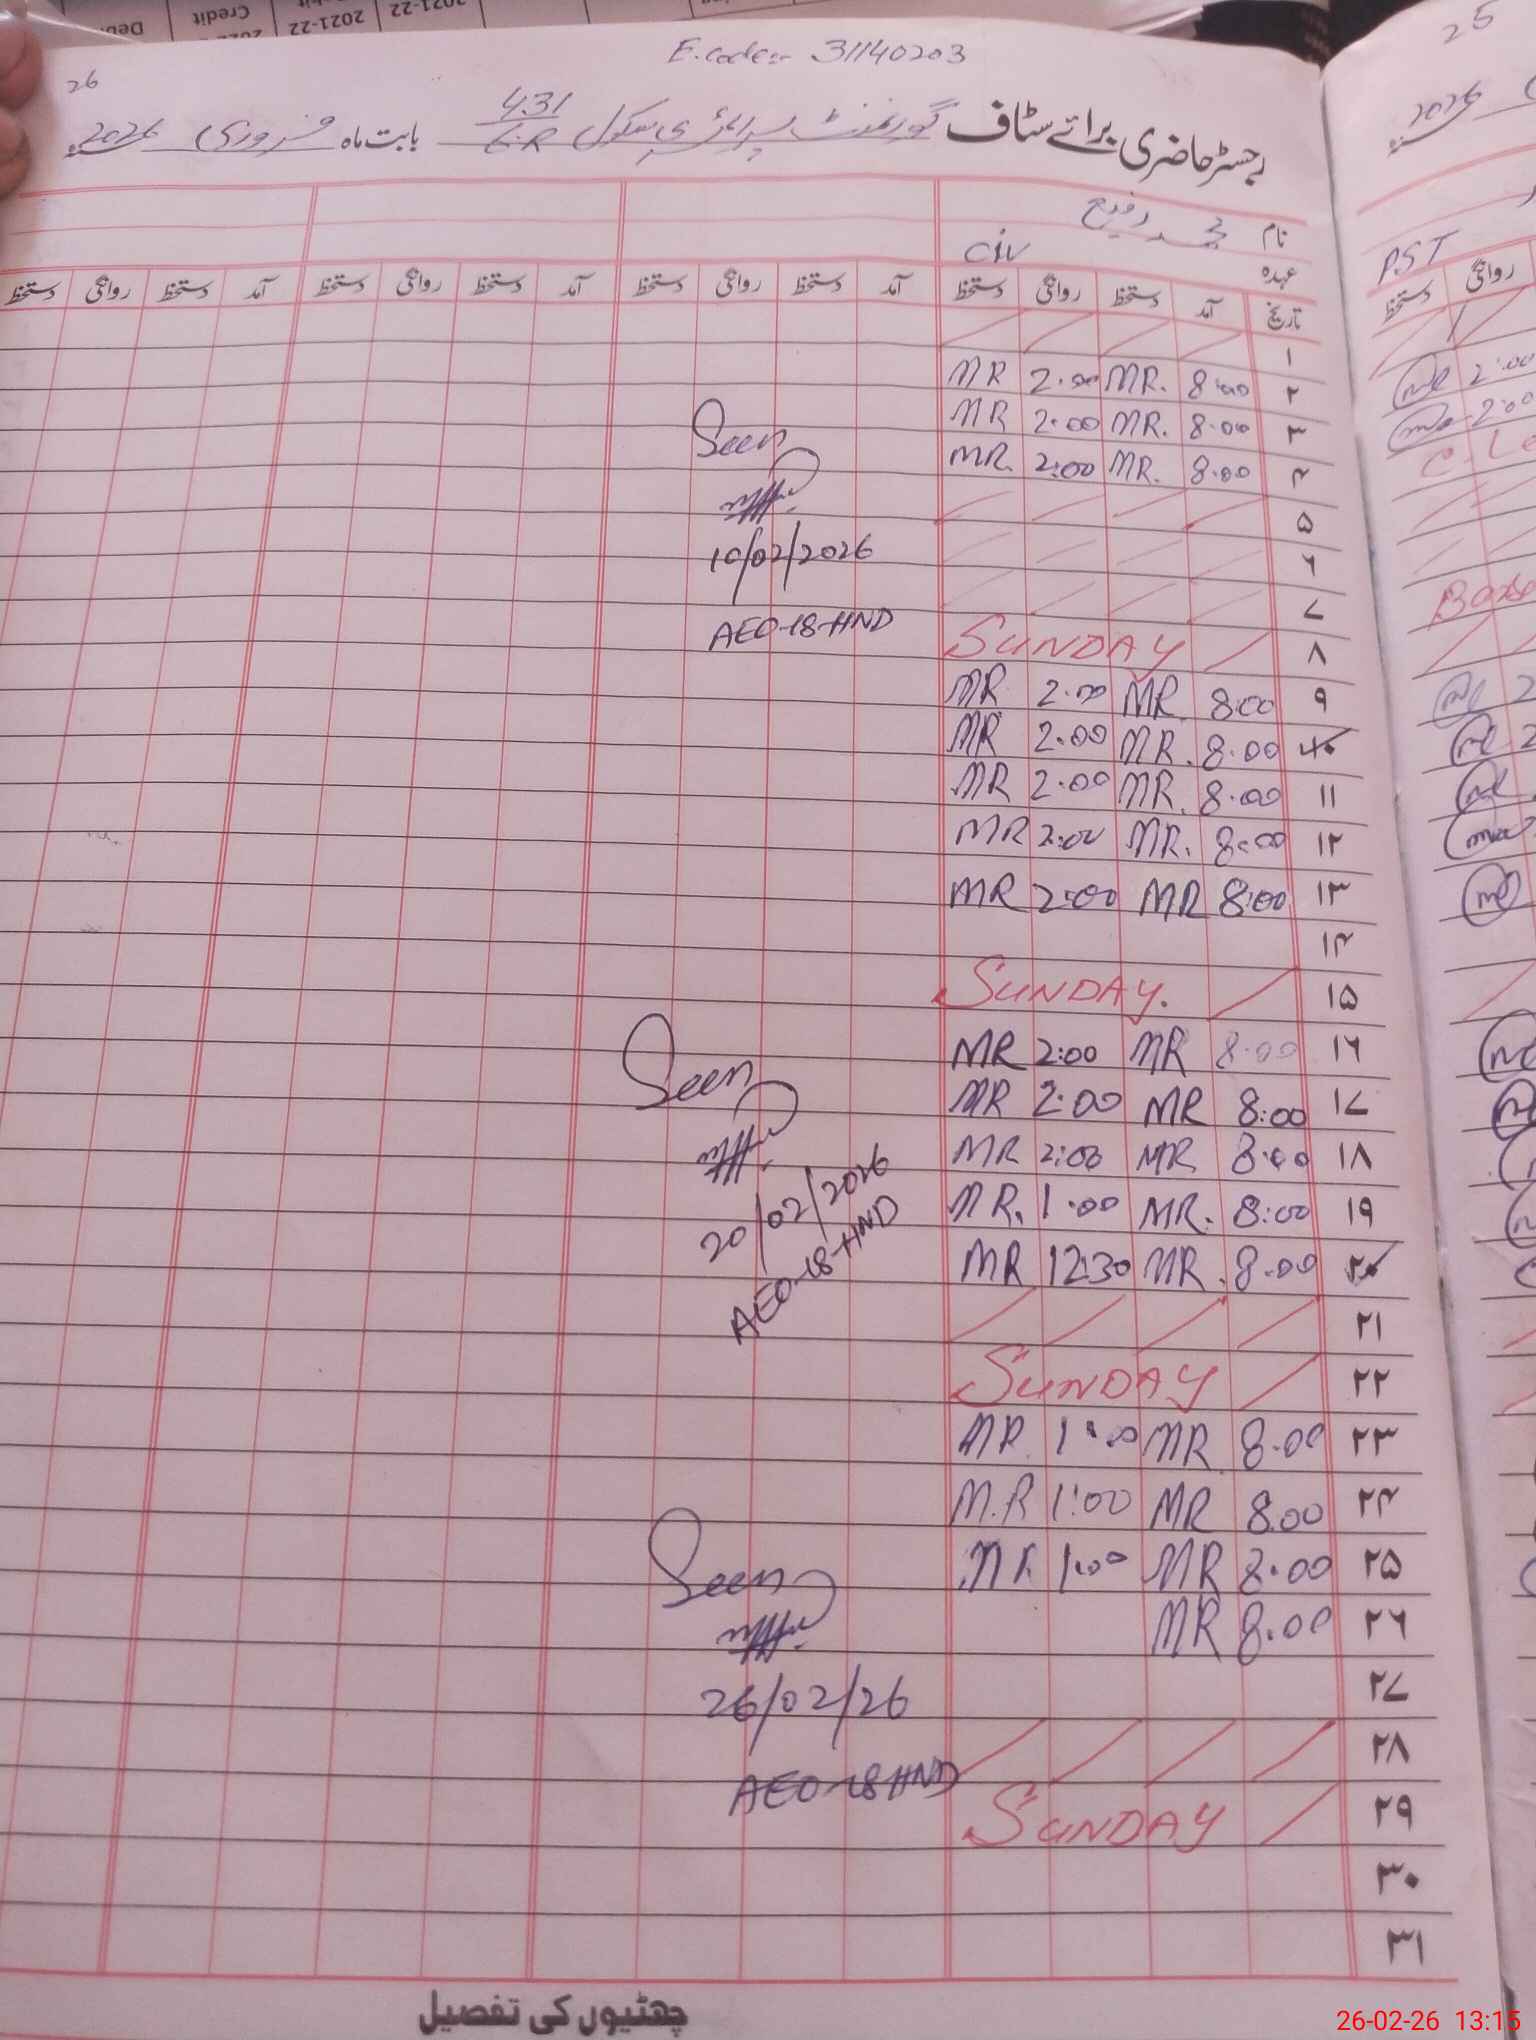 E.code:- 31140203
26
رجسٹر حاضری برائے سٹاف گورنمنٹ پرائمری سکول 431 بابت ماہ فروری 2026ء
نام محمد رفیع
عہدہ
تاریخ آمد دستخط روانگی دستخط آمد دستخط روانگی دستخط آمد دستخط روانگی دستخط آمد دستخط روانگی دستخط
۱
۲ 8:00 MR. 2:00 MR
۳ 8:00 MR. 2:00 MR
۴ 8:00 MR. 2:00 MR.
۵
۶
۷
۸ SUNDAY
۹ 8:00 MR. 2:00 MR
۱۰ 8:00 MR. 2:00 MR
۱۱ 8:00 MR. 2:00 MR
۱۲ 8:00 MR. 2:00 MR
۱۳ 8:00 MR 2:00 MR
۱۴
۱۵ SUNDAY.
۱۶ 8:00 MR 2:00 MR
۱۷ 8:00 MR 2:00 MR
۱۸ 8:00 MR 2:00 MR
۱۹ 8:00 MR. 1:00 MR.
۲۰ 8:00 MR. 12:30 MR
۲۱
۲۲ SUNDAY
۲۳ 8:00 MR 1:00 MR
۲۴ 8:00 MR 1:00 M.R
۲۵ 8:00 MR 1:00 MR
۲۶ 8:00 MR
۲۷
۲۸
۲۹ SUNDAY
۳۰
۳۱
Seen
10/02/2026
AEO-18-HND
Seen
20/02/2026
AEO-18-HND
Seen
26/02/26
AEO-18 HND
چھٹیوں کی تفصیل
25
2026
PST
روانگی
دستخط
2:00
2:00
2021-22
2021-22
Credit
26-02-26 13:15